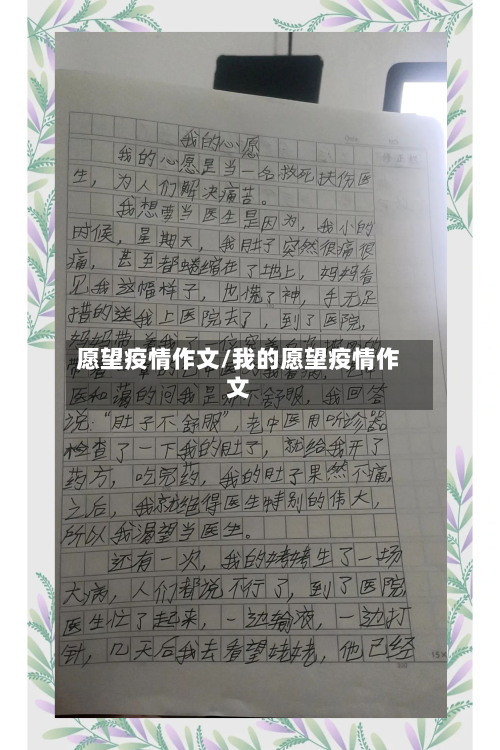 我的心愿
我的心愿是当一名救死扶伤医
生，为人们解决痛苦。
我想要当医生是因为，我小的
时候，星期天，我肚子突然很痛很
痛，甚至都蜷缩在了地上，妈妈看
见我这幅样子，也慌了神，手无足
措的送我上医院去了，到了医院，
愿望疫情作文/我的愿望疫情作
文
医和蔼的问我是 不舒服，我回答
说：“肚子不舒服”，老中医用听诊器
检查了一下我的肚子，就给我开了
药方，吃完药，我的肚子果然不痛，
之后，我就绝得医生特别的伟大，
所以我渴望当医生。
还有一次，我的姥姥生了一场
大病，人们都说不行了，到了医院
医生忙了起来，一边输液，一边打
针，几天后我去看望姥姥，他已经